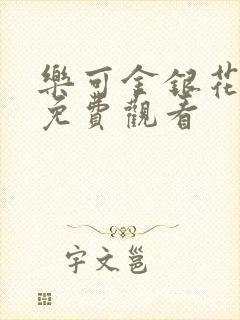 樂可金銀花
免費觀看
宇文邕